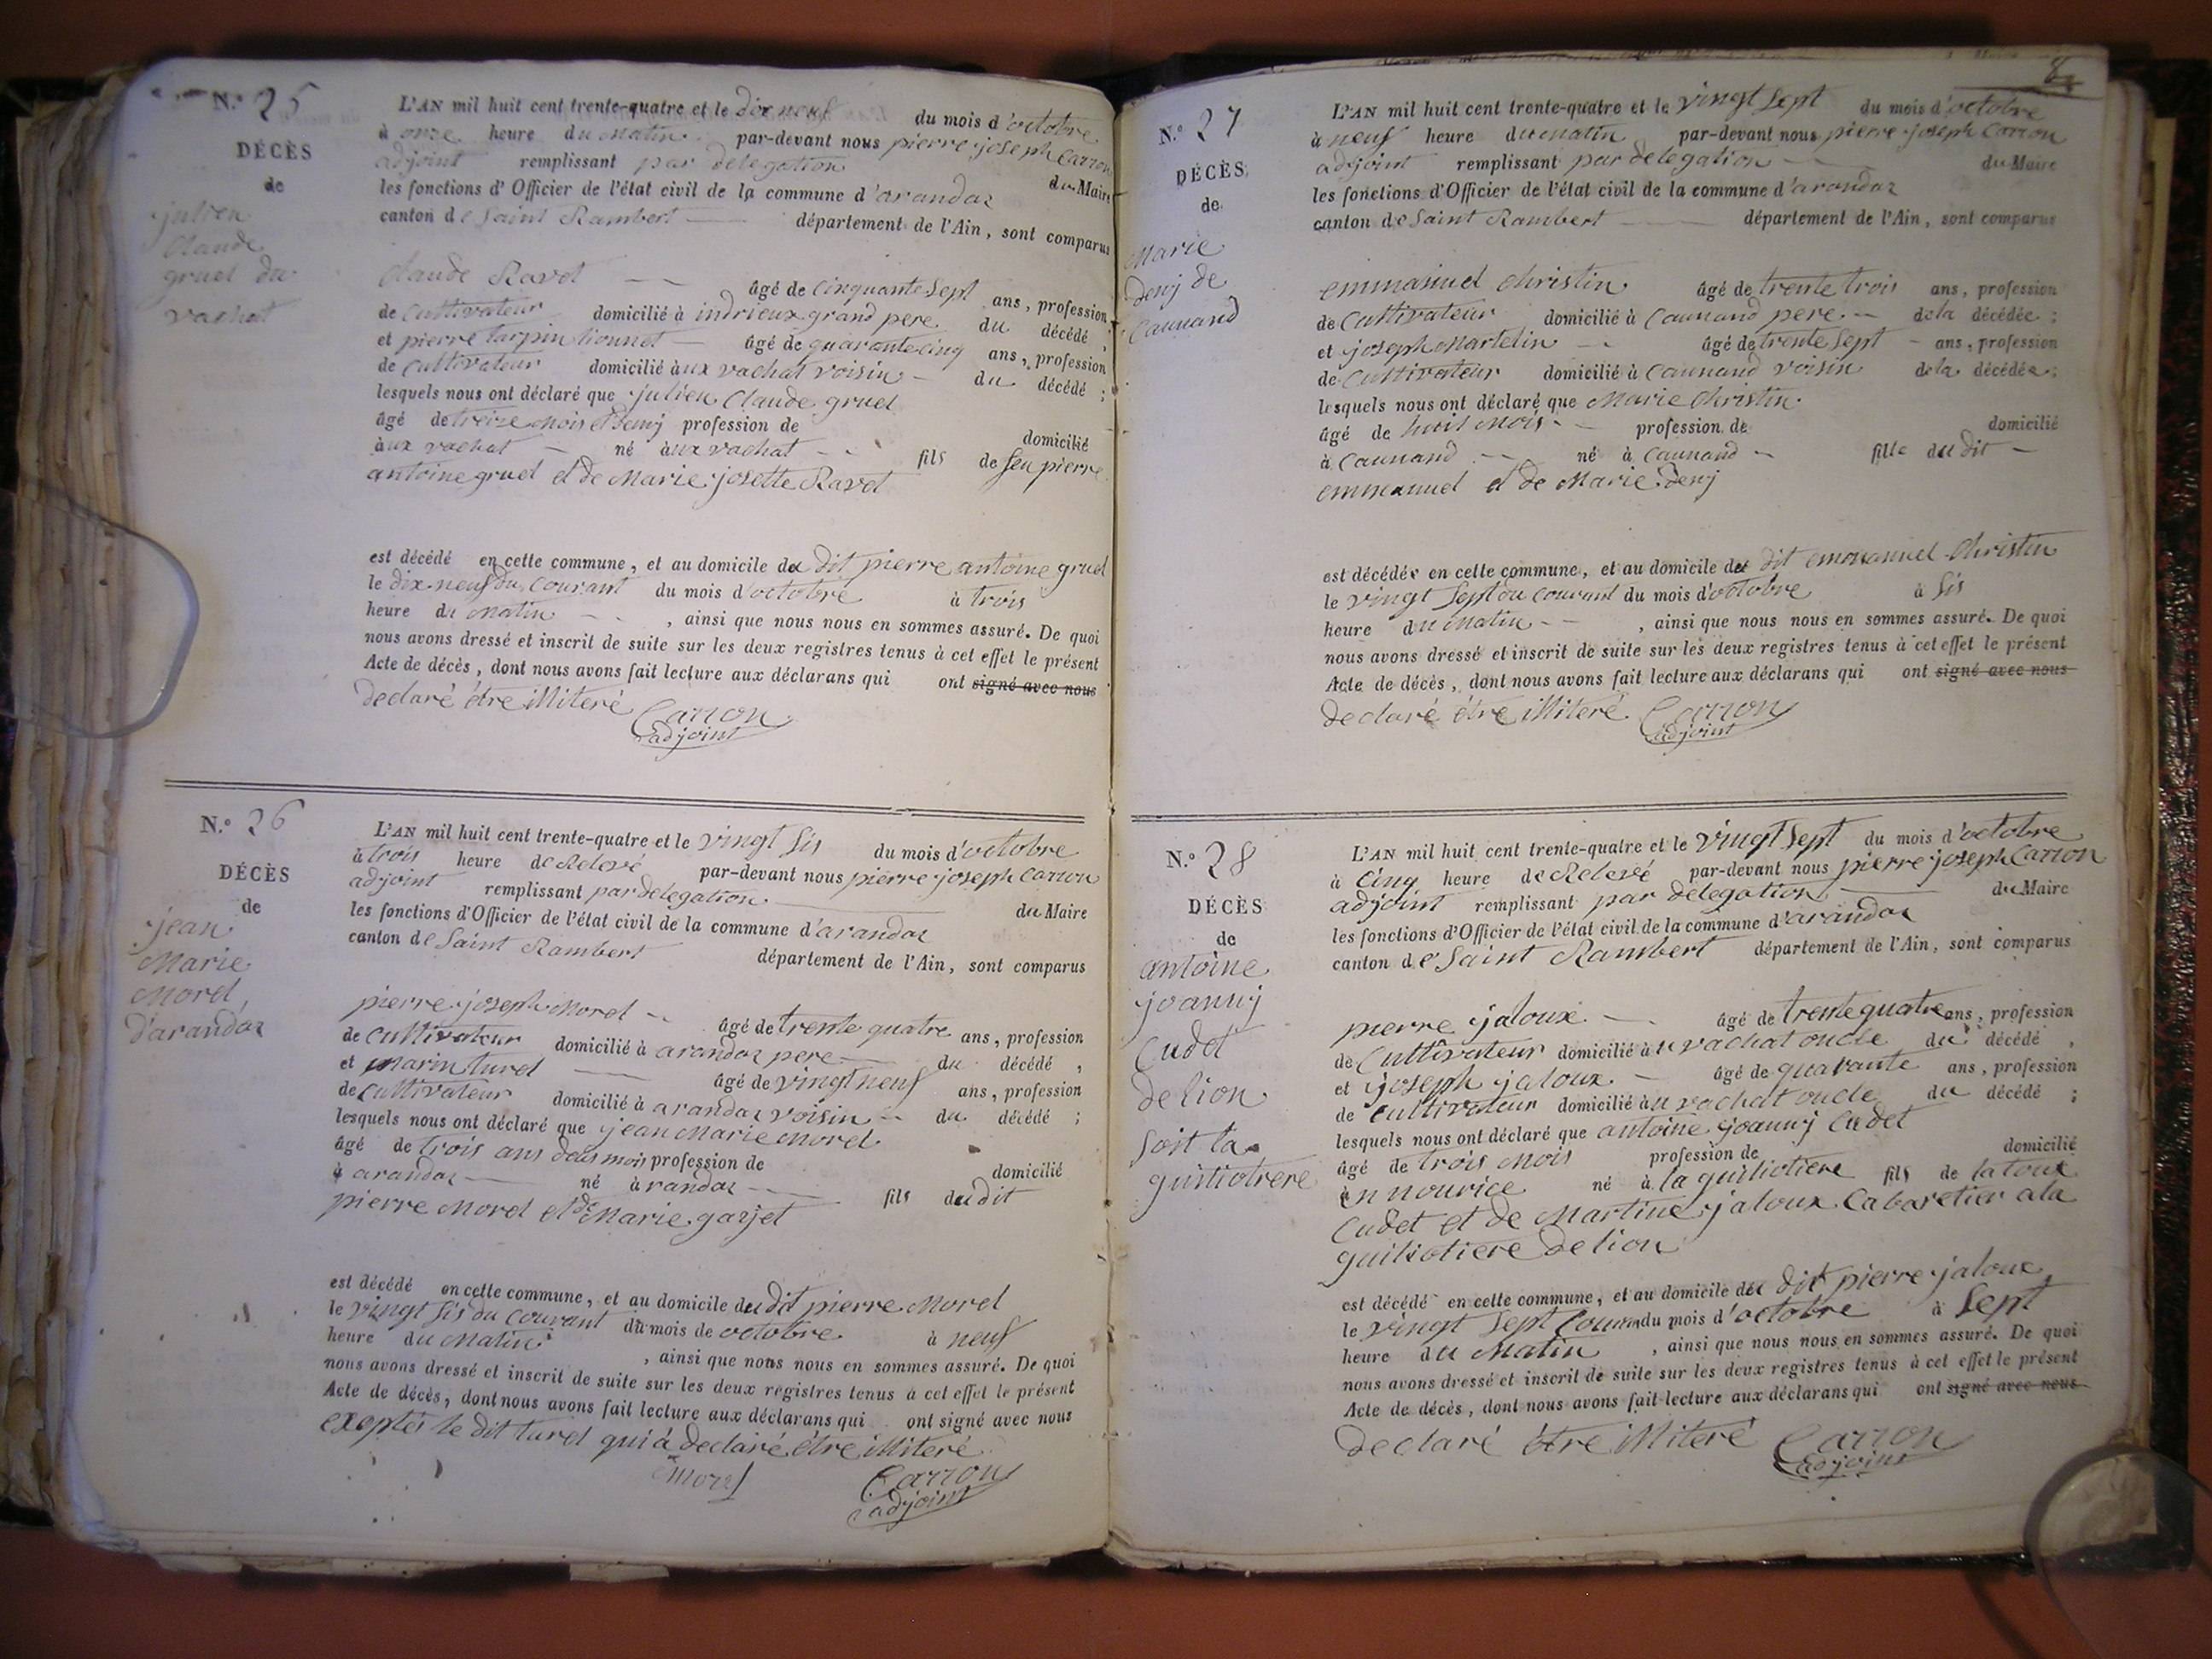 N.° 25
DÉCÈS
de
julien
Claude
gruel du
vachat
L'AN mil huit cent trente-quatre et le dix neuf du mois d'octobre
à onze heure du matin par-devant nous pierre joseph Carron
adjoint remplissant par delegation du Maire
les fonctions d'Officier de l'état civil de la commune d'arandaz
canton de Saint Rambert département de l'Ain, sont comparus
Claude Ravet âgé de Cinquante Sept ans, profession
de Cultivateur domicilié à indrieux grand pere du décédé,
et pierre tarpin lionnet âgé de quarante cinq ans, profession
de Cultivateur domicilié àux vachat voisin du décédé;
lesquels nous ont déclaré que julien Claude gruel
âgé de treize mois et demj profession de domicilié
àux vachat né àux vachat fils de feu pierre
antoine gruel et de Marie josette Ravet
est décédé en cette commune, et au domicile du dit pierre antoine gruel
le dix-neuf du Courant du mois d'octobre à trois
heure du Matin, ainsi que nous nous en sommes assuré. De quoi
nous avons dressé et inscrit de suite sur les deux registres tenus à cet effet le présent
Acte de décès, dont nous avons fait lecture aux déclarans qui ont signé avec nous
declaré être illiteré Carron
adjoint
N.° 26
DÉCÈS
de
jean
Marie
Morel,
d'arandaz
L'AN mil huit cent trente-quatre et le vingt Sis du mois d'octobre
à trois heure de Relevé par-devant nous pierre joseph Carron
adjoint remplissant par delegation du Maire
les fonctions d'Officier de l'état civil de la commune d'arandaz
canton de Saint Rambert département de l'Ain, sont comparus
pierre joseph Morel âgé de trente quatre ans, profession
de Cultivateur domicilié à arandaz pere du décédé,
et marin turel âgé de vingt neuf ans, profession
de Cultivateur domicilié à arandaz voisin du décédé;
lesquels nous ont déclaré que jean Marie Morel
âgé de trois ans deus mois profession de domicilié
à arandaz né àrandaz fils du dit
pierre Morel et de Marie garjet
est décédé en cette commune, et au domicile du dit pierre Morel
le vingt Sis du Courant du mois de octobre à neuf
heure du Matin, ainsi que nous nous en sommes assuré. De quoi
nous avons dressé et inscrit de suite sur les deux registres tenus à cet effet le présent
Acte de décès, dont nous avons fait lecture aux déclarans qui ont signé avec nous
exeptés le dit turel qui à declaré être illiteré
Morel Carron
adjoint
N.° 27
DÉCÈS
de
Marie
Denj de
Caunand
L'AN mil huit cent trente-quatre et le vingt Sept du mois d'octobre
à neuf heure du matin par-devant nous pierre joseph Carron
adjoint remplissant par delegation du Maire
les fonctions d'Officier de l'état civil de la commune d'arandaz
canton de Saint Rambert département de l'Ain, sont comparus
emmanuel Christin âgé de trente trois ans, profession
de Cultivateur domicilié à Caunand pere dela décédée;
et joseph Martelin âgé de trente Sept ans, profession
de Cultivateur domicilié à Caunand voisin dela décédée;
lesquels nous ont déclaré que Marie Christin
âgé de huit Mois profession de domicilié
à Caunand né à Caunand fille du dit
emmanuel et de Marie Denj
est décédée en cette commune, et au domicile du dit emmanuel Christin
le vingt Sept du Courant du mois d'octobre à Sis
heure du Matin, ainsi que nous nous en sommes assuré. De quoi
nous avons dressé et inscrit de suite sur les deux registres tenus à cet effet le présent
Acte de décès, dont nous avons fait lecture aux déclarans qui ont signé avec nous
declaré être illiteré Carron
adjoint
N.° 28
DÉCÈS
de
antoine
joannj
Cudet
de lion
Soit la
L'AN mil huit cent trente-quatre et le vingt Sept du mois d'octobre
à Cinq heure de Relevé par-devant nous pierre joseph Carron
adjoint remplissant par delegation du Maire
les fonctions d'Officier de l'état civil de la commune d'arandaz
canton de Saint Rambert département de l'Ain, sont comparus
pierre jaloux âgé de trente quatre ans, profession
de Cultivateur domicilié àu vachat oncle du décédé,
et joseph jaloux âgé de quarante ans, profession
de Cultivateur domicilié àu vachat oncle du décédé;
lesquels nous ont déclaré que antoine joannj Cudet
âgé de trois Mois profession de domicilié
èn nourice né à la guiliotiere fils de
Cudet et de Martine jaloux Cabaretier a la
guiliotiere de lion
est décédé en cette commune, et au domicile du dit pierre jaloux
le vingt Sept du mois d'octobre à Sept
heure du Matin, ainsi que nous nous en sommes assuré. De quoi
nous avons dressé et inscrit de suite sur les deux registres tenus à cet effet le présent
Acte de décès, dont nous avons fait lecture aux déclarans qui ont signé avec nous
declaré être illiteré Carron
adjoint